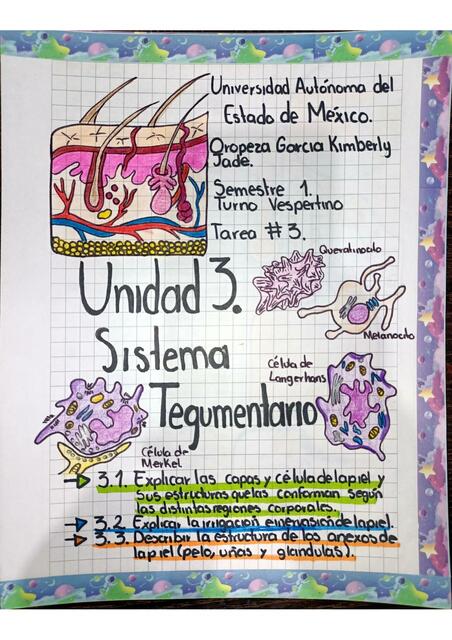 Universidad Autónoma del
Estado de México.
Oropeza Garcia Kimberly
Jade.
Semestre 1.
Turno Vespertino
Tarea #3.
Queratinocito
Melanocito
Unidad 3.
Sistema
Tegumentario
Célula de
Langerhans
Célula de
Merkel
3.1. Explicar las capas y célula de la piel y
sus estructuras que las conforman según
las distintas regiones corporales.
3.2 Explicar la irrigación e inervasión de la piel.
3.3. Describir la estructura de los anexos de
la piel (pelo, uñas y glandulas).